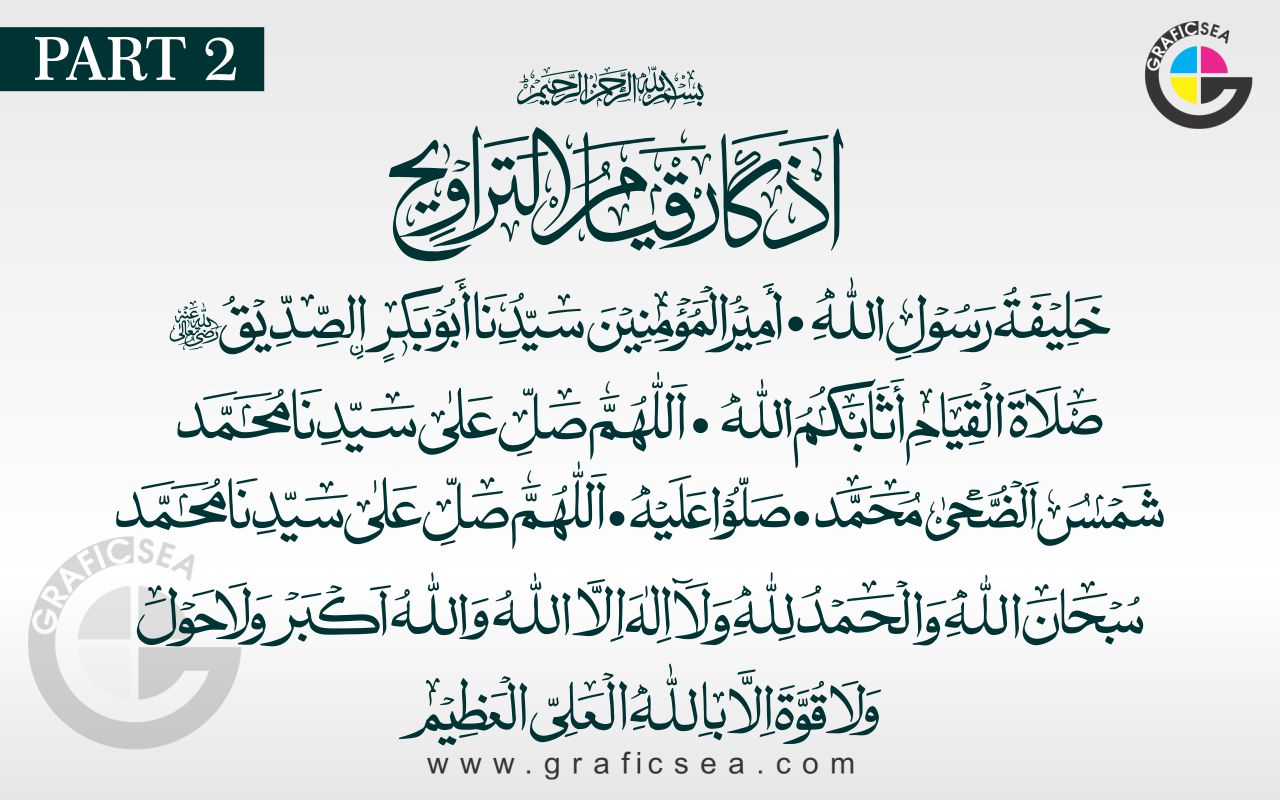 PART 2
GRAFICSEA
بِسْمِ اللهِ الرَّحْمٰنِ الرَّحِيْمِ
اَذْكَار قِيَامُ التَّرَاوِيح
خَلِيْفَةُ رَسُوْلِ اللهِ • أَمِيْرُ الْمُؤْمِنِيْنَ سَيِّدُنَا أَبُوْ بَكَرٍ نِ الصِّدِّيْقُ رضي الله تعالى عنه
صَلَاةَ الْقِيَامِ أَثَابَكُمُ اللهُ • اَللّٰهُمَّ صَلِّ عَلٰى سَيِّدِنَا مُحَمَّد
شَمْسُ الضُّحٰى مُحَمَّد • صَلُّوْا عَلَيْهِ • اَللّٰهُمَّ صَلِّ عَلٰى سَيِّدِنَا مُحَمَّد
سُبْحَانَ اللهِ وَالْحَمْدُ لِلّٰهِ وَلَآ اِلٰهَ اِلَّا اللهُ وَاللهُ اَكْبَرْ وَلَا حَوْلَ
وَلَا قُوَّةَ اِلَّا بِاللهِ الْعَلِىِّ الْعَظِيْمْ
GRAFICSEA
www.graficsea.com